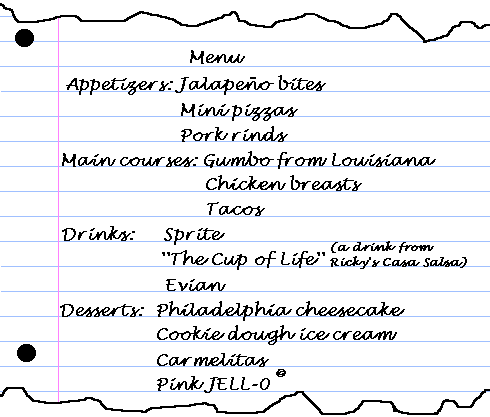 Menu
Appetizers: Jalapeño bites
Mini pizzas
Pork rinds
Main courses: Gumbo from Louisiana
Chicken breasts
Tacos
Drinks: Sprite
"The Cup of Life" (a drink from Ricky's Casa Salsa)
Evian
Desserts: Philadelphia cheesecake
Cookie dough ice cream
Carmelitas
Pink JELL-O ®